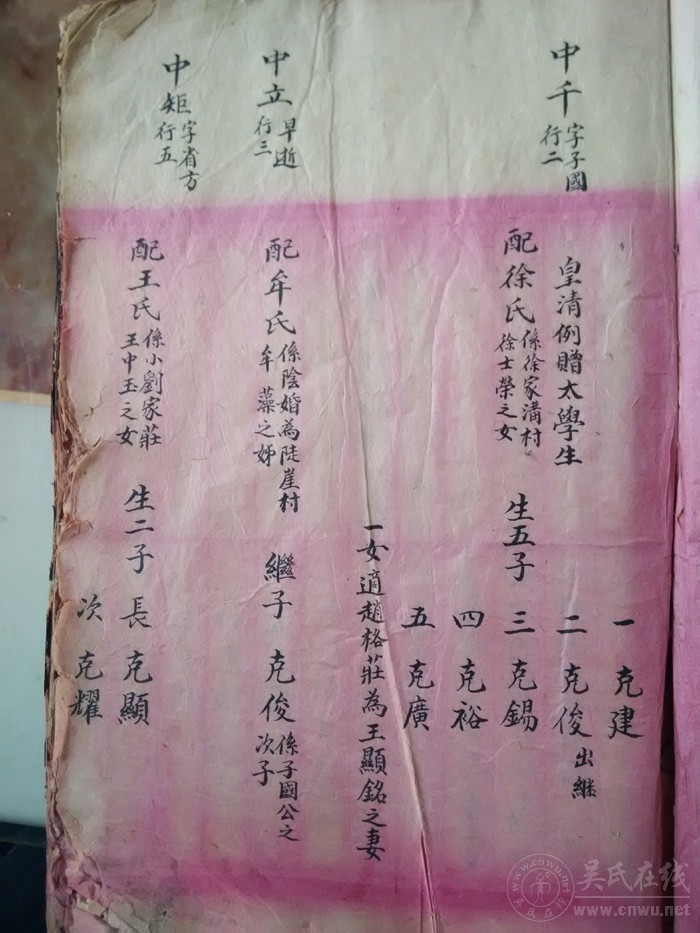 中千 字子國
行二
皇清例贈太學生
配徐氏 係徐家溝村
徐士榮之女
生五子
一 克建
二 克俊 出継
三 克錫
四 克裕
五 克廣
一女適趙格莊為王顯銘之妻
中立 早逝
行三
配牟氏 係陰婚為陡崖村
牟藻之姊
繼子 克俊 係子國公之
次子
中矩 字省方
行五
配王氏 係小劉家莊
王中玉之女
生二子 長 克顯
次 克耀
吴氏在线
www.cnwu.net